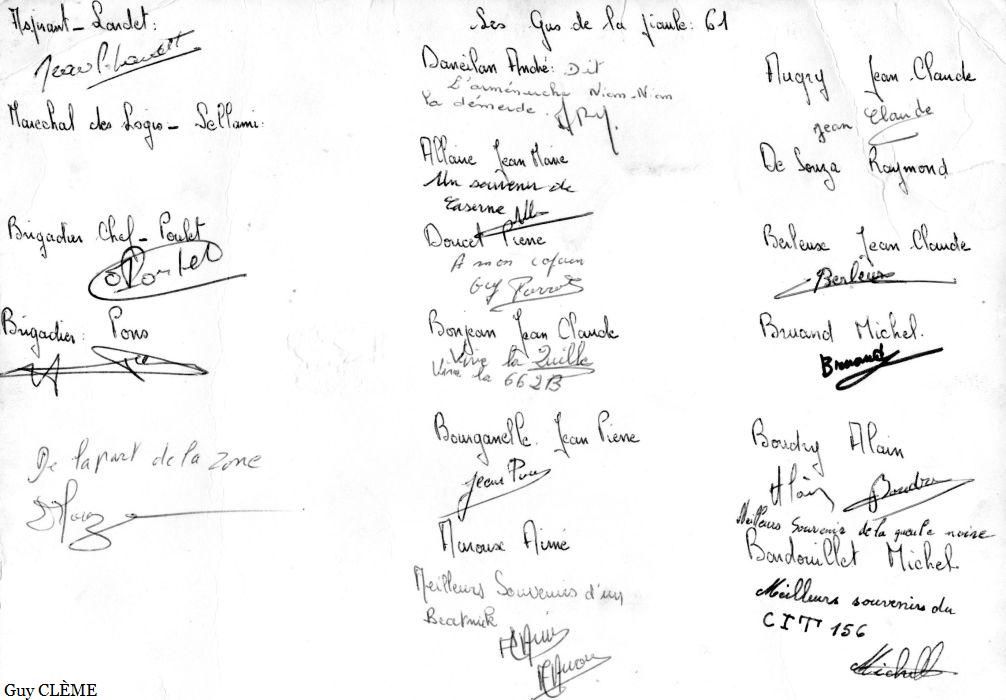 Adjudant - Landet:
Marechal des Logis - Sellami.
Brigadier Chef - Poulet
Brigadier: Pons
De la part de la zone
Les Gus de la piaule: 61
Daneilan André: Dit
L'arménuche Niam-Niam
la démerde.
Allaire Jean Marie
Un souvenir de
Caserne
Doucet Pierre
A mon copain
Guy
Bonjean Jean Claude
Vive la Quille
Vive la 662B
Bourganelle Jean Pierre
Jean
Maroux Aimé
Meilleurs Souvenirs d'un
Beatnick
Augry Jean Claude
Jean Claude
De Souza Raymond
Berleux Jean Claude
Berleux
Bruand Michel.
Bruand
Boudry Alain
Alain Boudry
Meilleurs Souvenir de la gueule noire
Baudouillet Michel.
Meilleurs souvenirs du
CIT 156
Michel
Guy CLÈME